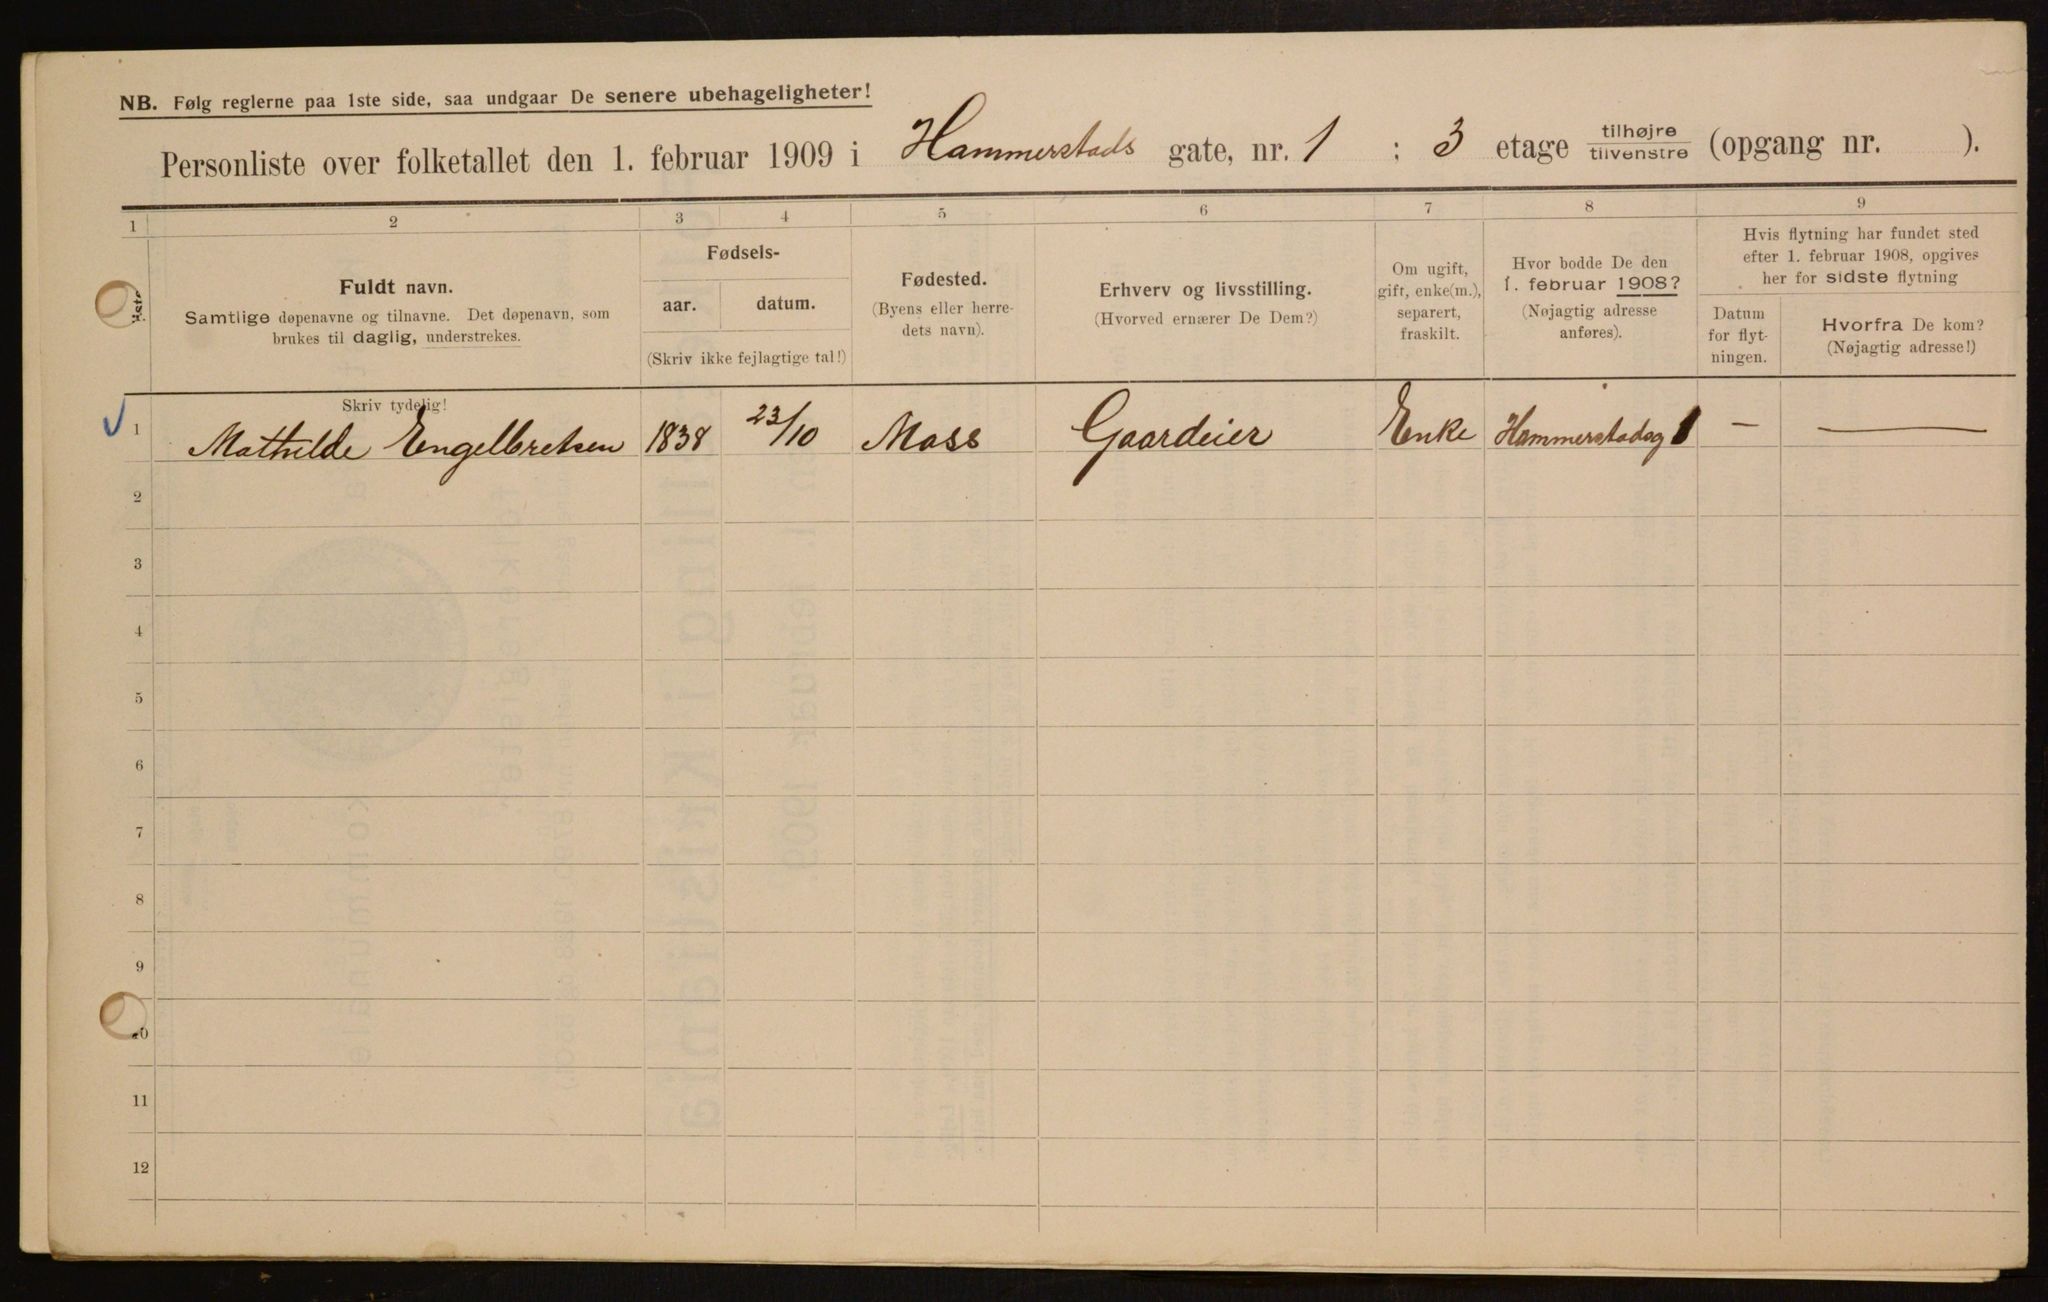 NB. Følg reglerne paa 1ste side, saa undgaar De senere ubehageligheter!
Personliste over folketallet den 1. februar 1909 i Hammerstads gate, nr. 1 : 3 etage tilhøjre tilvenstre (opgang nr. ).
1 2 3 4 5 6 7 8 9
Fuldt navn.
Samtlige døpenavne og tilnavne. Det døpenavn, som
brukes til daglig, understrekes.
Skriv tydelig!
Fødsels-
aar. datum.
(Skriv ikke fejlagtige tal!)
Fødested.
(Byens eller herre-
dets navn).
Erhverv og livsstilling.
(Hvorved ernærer De Dem?)
Om ugift,
gift, enke(m.),
separert,
fraskilt.
Hvor bodde De den
1. februar 1908?
(Nøjagtig adresse
anføres).
Hvis flytning har fundet sted
efter 1. februar 1908, opgives
her for sidste flytning
Datum
for flyt-
ningen.
Hvorfra De kom?
(Nøjagtig adresse!)
1 Mathilde Engelbretsen 1838 23/10 Moss Gaardeier Enke Hammerstadsg 1 — —
2
3
4
5
6
7
8
9
10
11
12